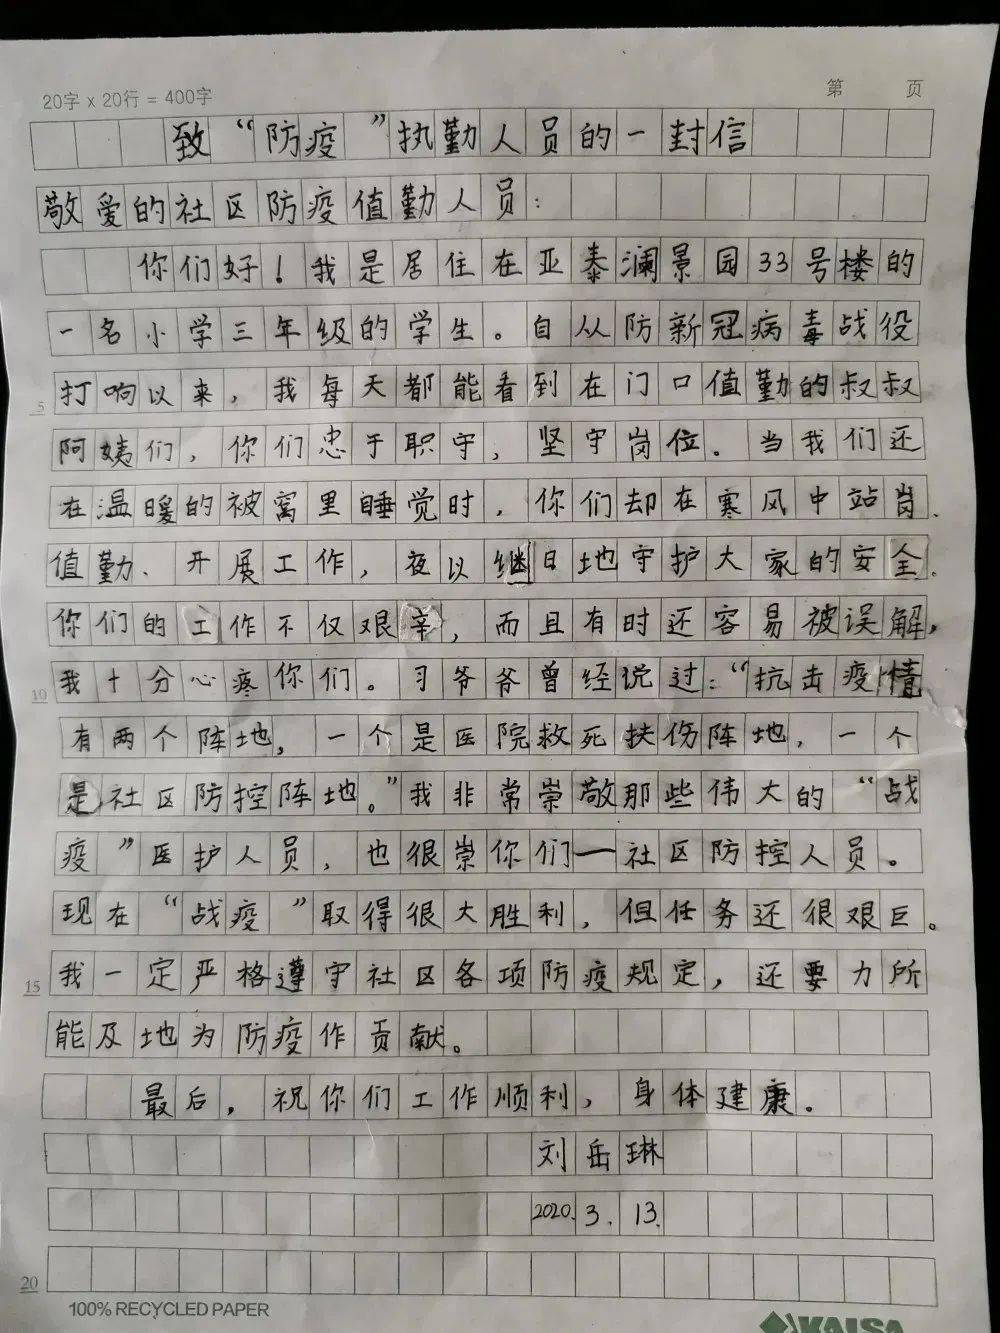 20字 x 20行 = 400字
第 页
致“防疫”执勤人员的一封信
敬爱的社区防疫值勤人员：
你们好！我是居住在亚泰澜景园33号楼的
一名小学三年级的学生。自从防新冠病毒战役
打响以来，我每天都能看到在门口值勤的叔叔
5
阿姨们，你们忠于职守，坚守岗位。当我们还
在温暖的被窝里睡觉时，你们却在寒风中站岗、
值勤、开展工作，夜以继日地守护大家的安全.
你们的工作不仅艰辛，而且有时还容易被误解，
我十分心疼你们。习爷爷曾经说过：“抗击疫情
10
有两个阵地，一个是医院救死扶伤阵地，一个
是社区防控阵地。”我非常崇敬那些伟大的“战
疫”医护人员，也很崇你们一社区防控人员。
现在“战疫”取得很大胜利，但任务还很艰巨。
我一定严格遵守社区各项防疫规定，还要力所
15
能及地为防疫作贡献。
最后，祝你们工作顺利，身体健康。
刘岳琳
2020.3.13.
20
100% RECYCLED PAPER
KAISA